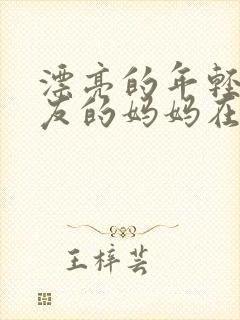 漂亮的年轻
友的妈妈在
王梓芸